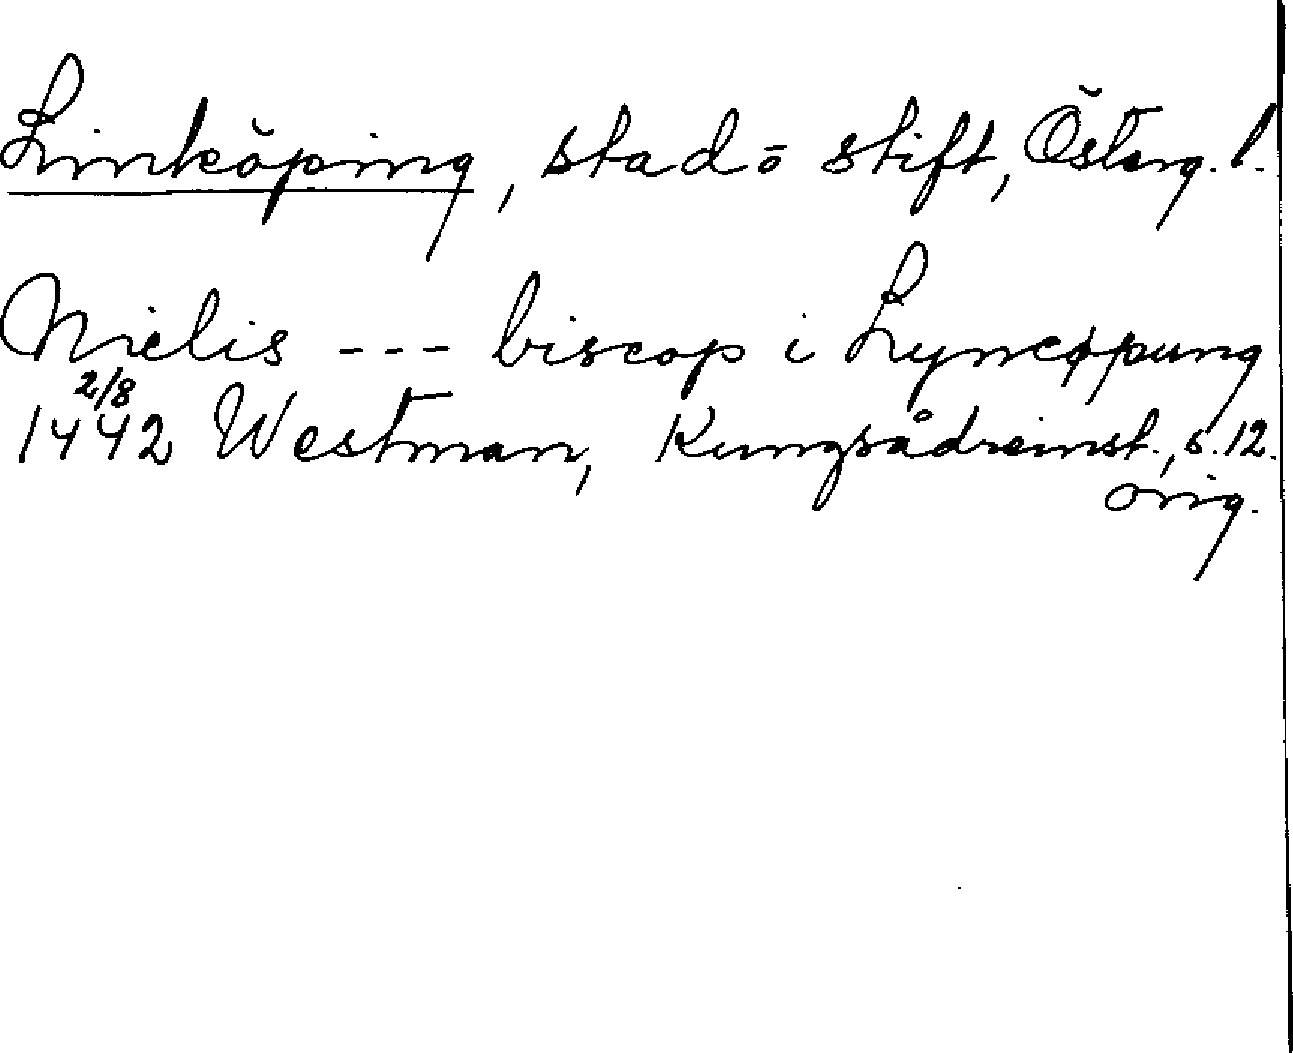 Linköping, stad o stift, Österg. l.
Nielis --- biscop i Lyncøpung
2/8
1442 Westman, Kungsådreinst., s. 12.
orig.